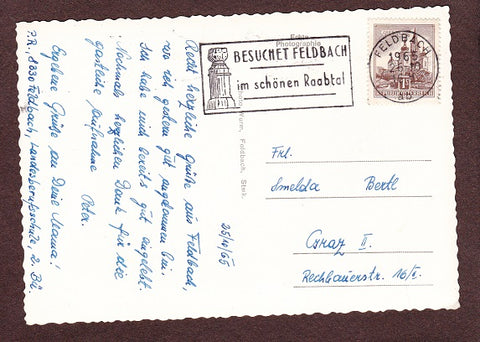 Recht herzliche Grüße aus Feldbach,
wo ich gestern gut angekommen bin.
Ich habe mich bereits gut eingelebt.
Nochmals herzlichen Dank für die
gastliche Aufnahme
Peter.
Ergebene Grüße an Deine Mama!
P.R., 8330 Feldbach, Landesberufsschule, 2. Bil.
25/4/65
Echte
Photographie
Feldbach, Stmk.
BESUCHET FELDBACH
im schönen Raabtal
FELDBACH
1965
REPUBLIK ÖSTERREICH
Frl.
Imelda Bertl
Graz II.
Rechbauerstr. 16/I.